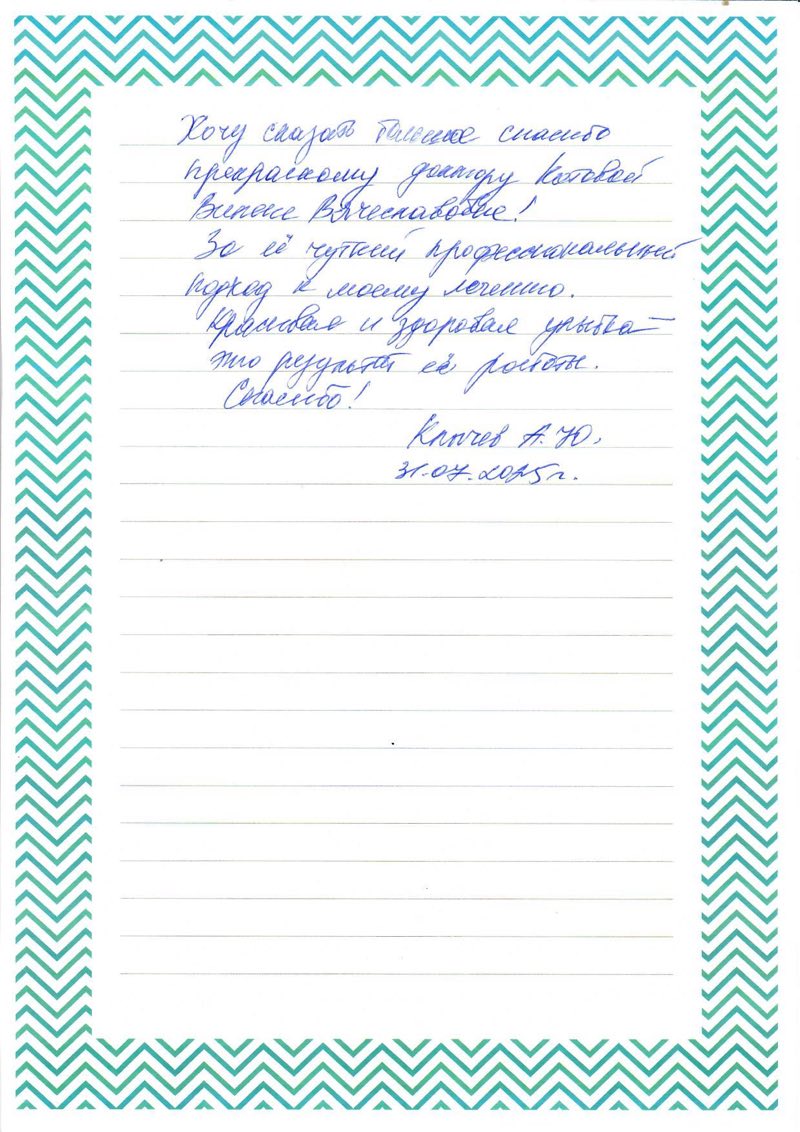 Хочу сказать большое спасибо
прекрасному доктору Котовой
Вячеславовне!
За её чуткий профессиональный
подход к моему лечению.
Красивая и здоровая улыбка –
это результат её работы.
Спасибо!
Клычев А.Ю.
31.07.2025г.